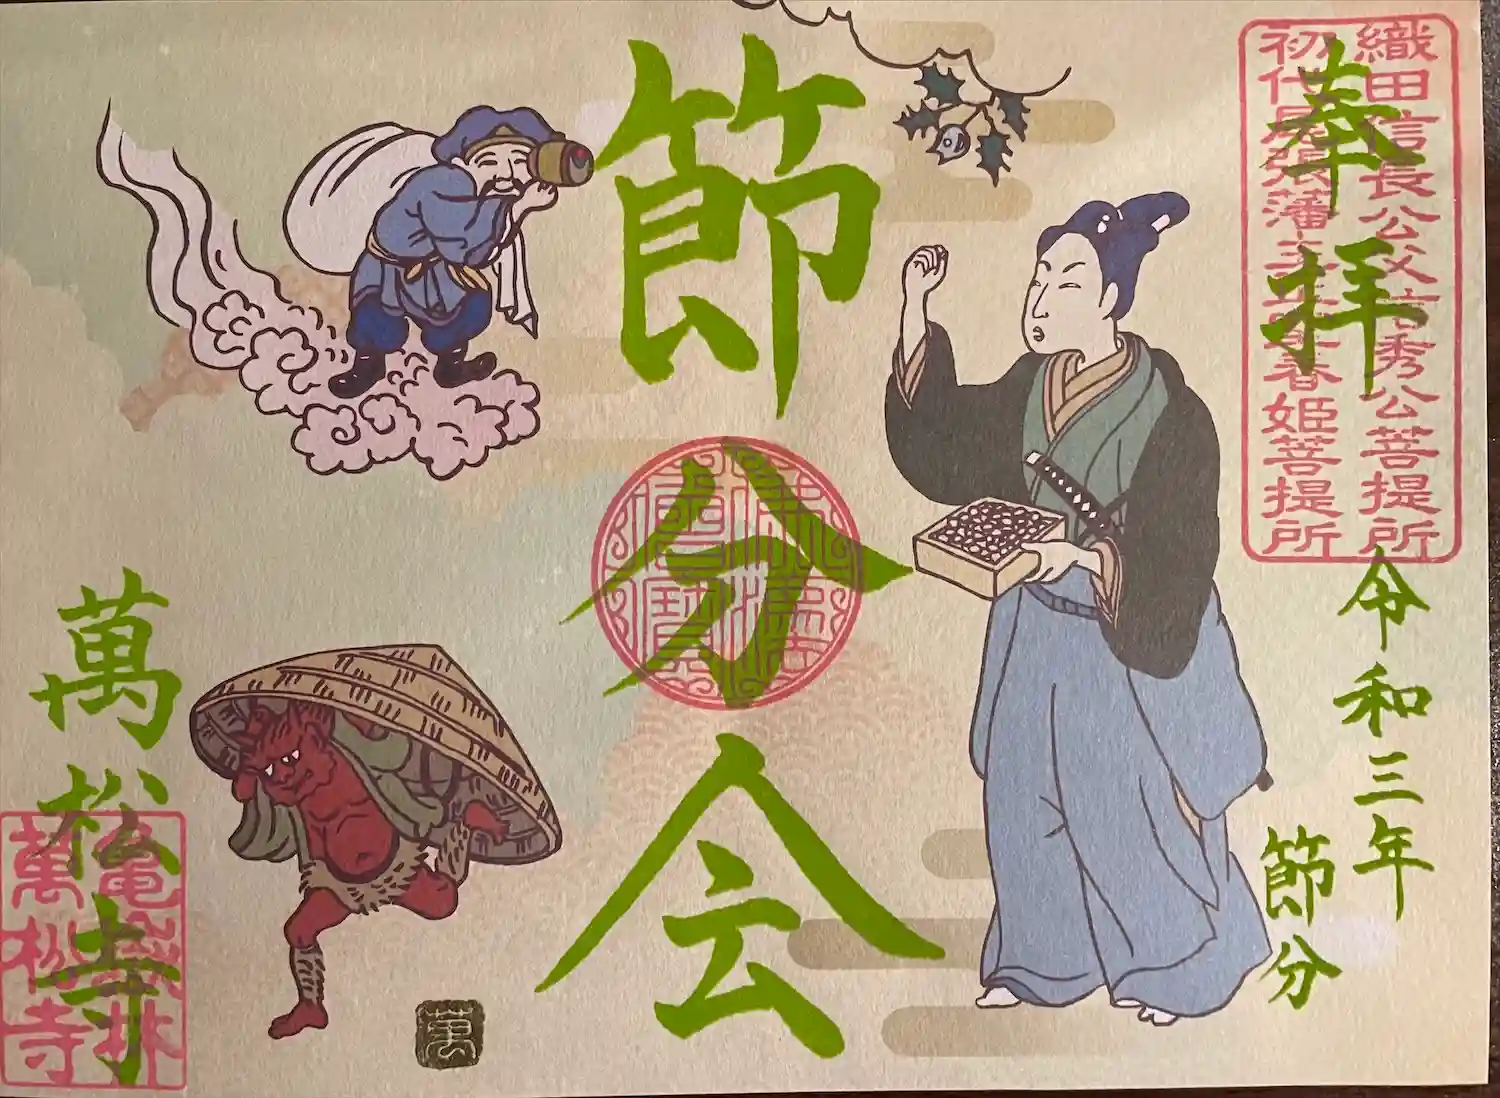 奉拝
織田信長公父信秀公菩提所
初代尾張藩主正室春姫菩提所
令和三年
節分
節分会
萬松寺
亀嶽林
萬松寺
萬